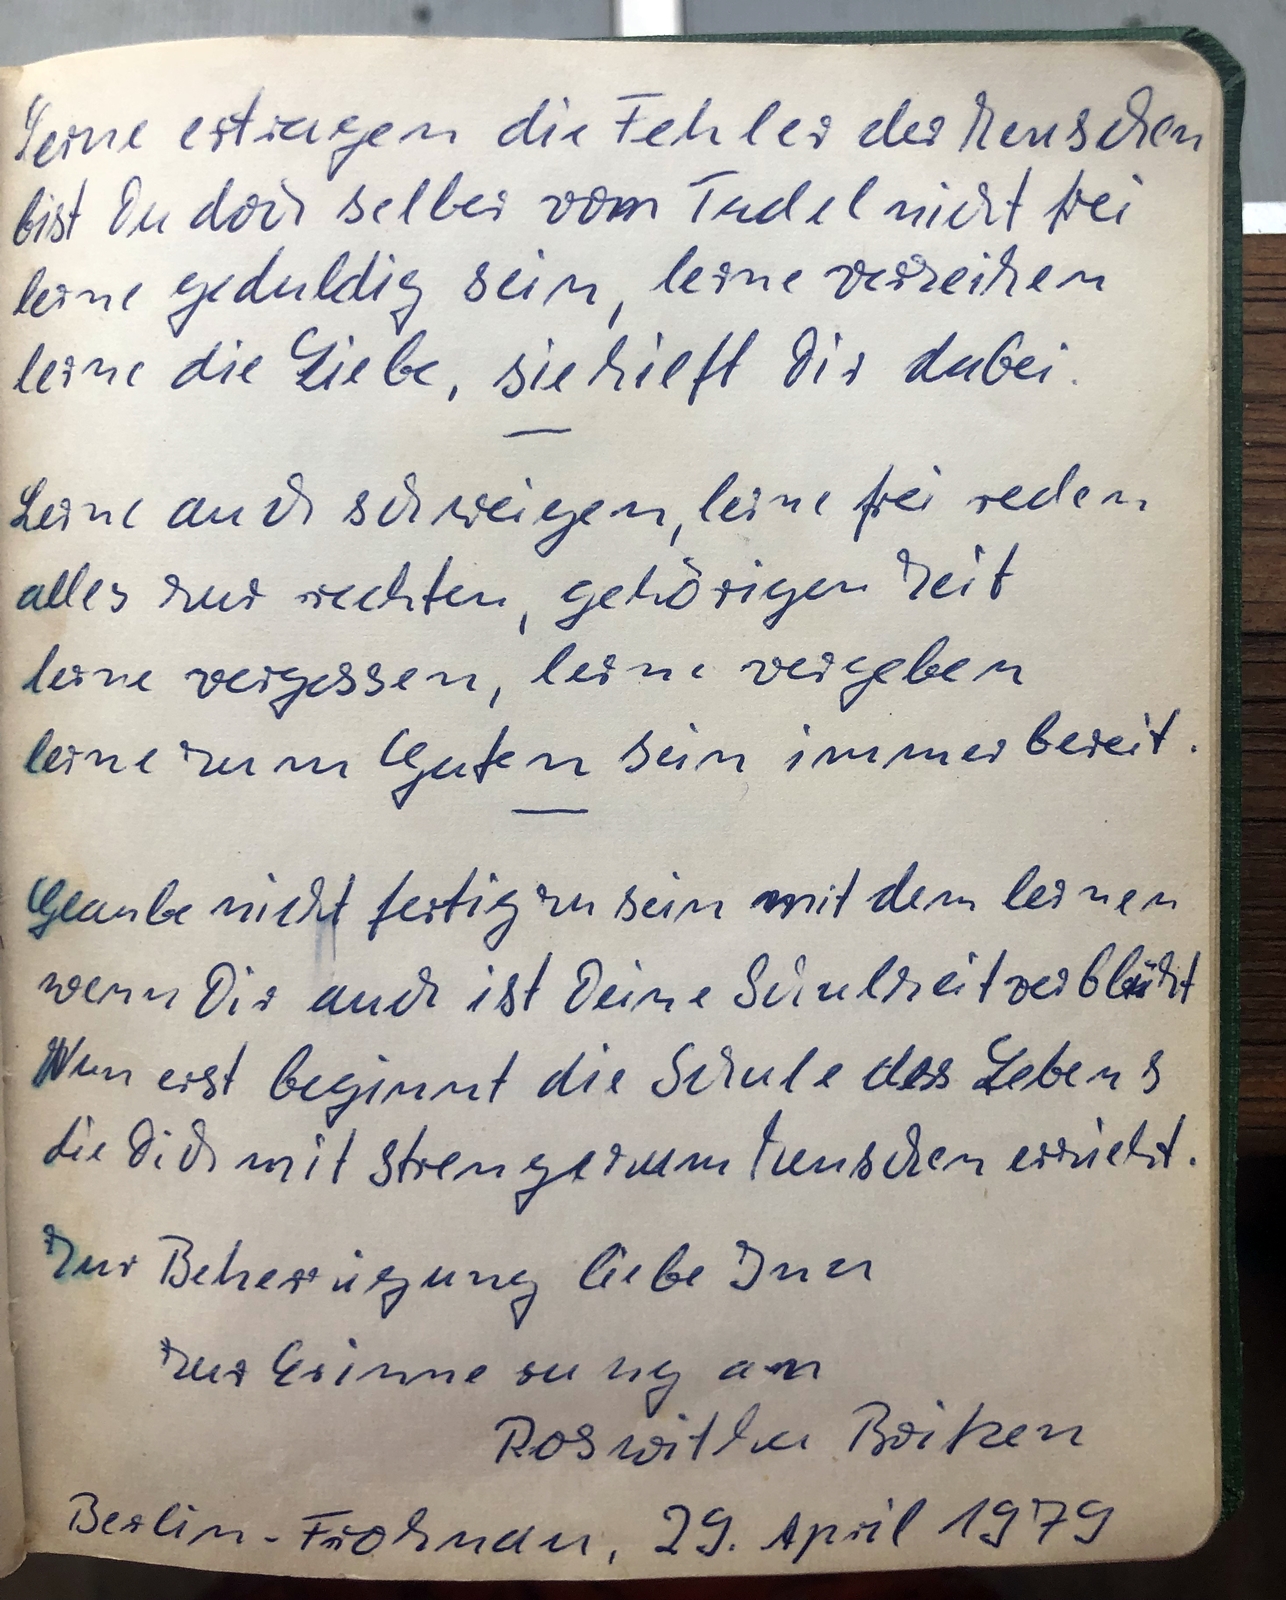 Lerne ertragen die Fehler der Menschen
bist Du doch selber vom Tadel nicht frei
lerne geduldig sein, lerne verzeihen
lerne die Liebe, sie hilft Dir dabei.
Lerne auch schweigen, lerne frei reden
alles zur rechten, gehörigen Zeit
lerne vergessen, lerne vergeben
lerne zum Guten sein immer bereit.
Glaube nicht fertig zu sein mit dem lernen
wenn Dir auch ist Deine Schulzeit verblüht
Nun erst beginnt die Schule des Lebens
die Dich mit Strenge zum Menschen erzieht.
Zur Beherzigung liebe Ina
Zur Erinnerung an
Roswitha Britzen
Berlin-Frohnau, 29. April 1979